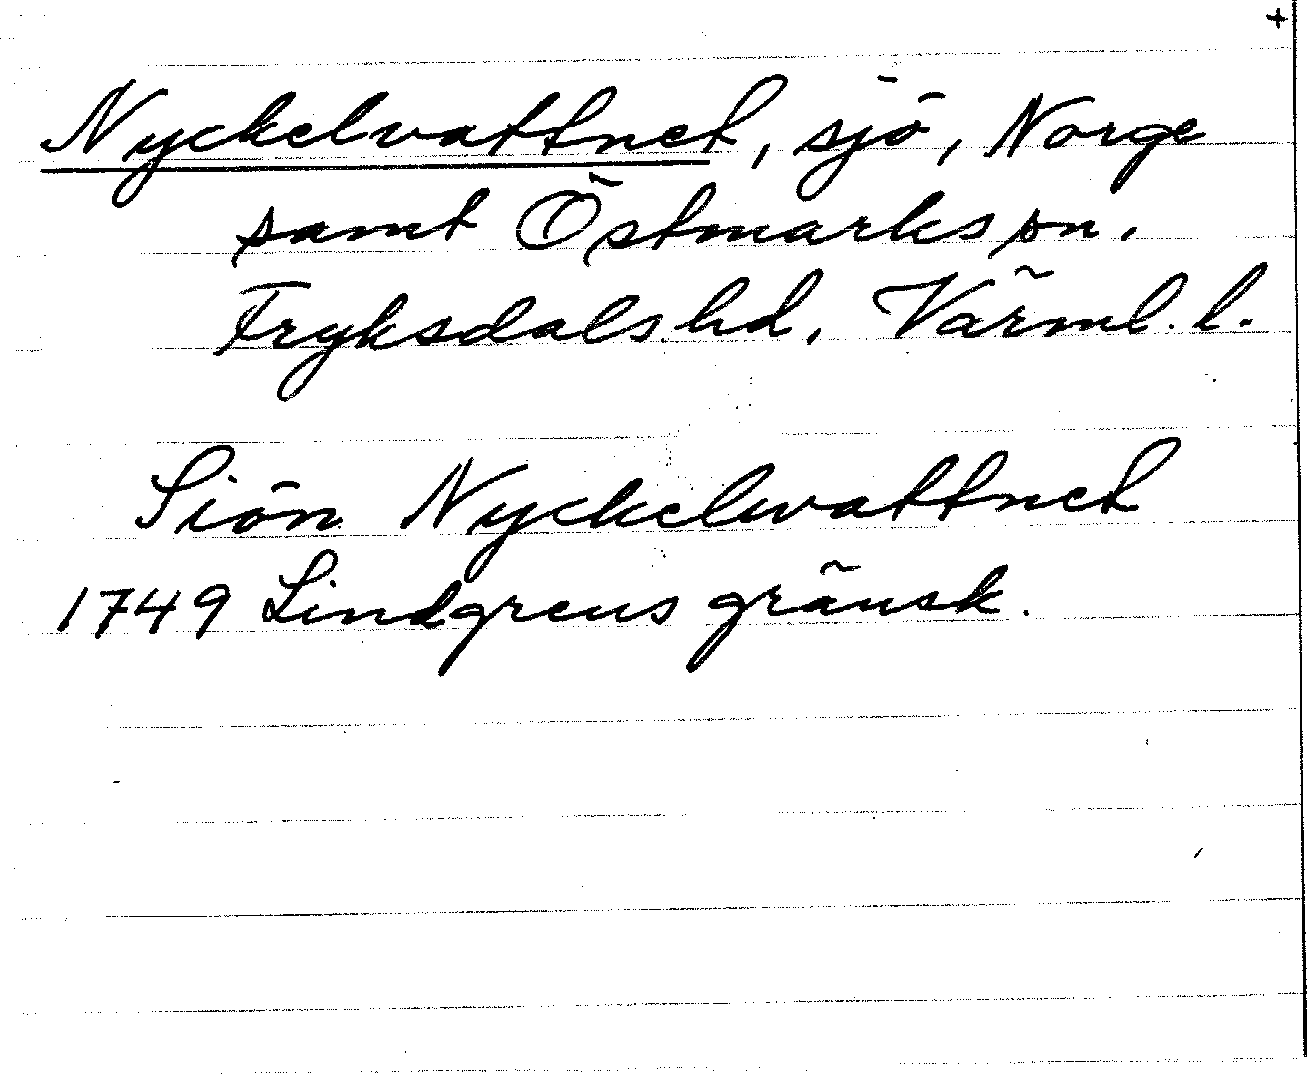 +
Nyckelvattnet, sjö, Norge
samt Östmarks sn.
Fryksdals hd, Värml. l.
Siön Nyckelwattnet
1749 Lindgrens gränsk.